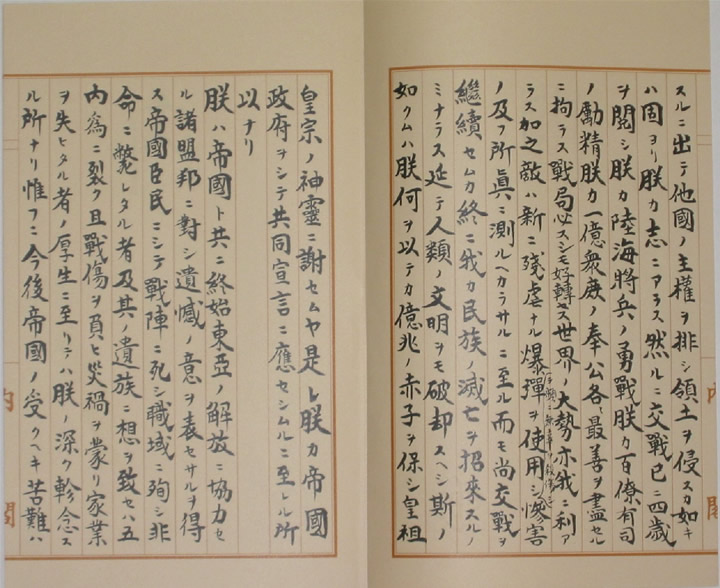 スルニ出テ他國ノ主權ヲ排シ領土ヲ侵スカ如キ
ハ固ヨリ朕カ志ニアラス然ルニ交戰已ニ四歳
ヲ閲シ朕カ陸海將兵ノ勇戰朕カ百僚有司
ノ勵精朕カ一億衆庶ノ奉公各〻最善ヲ盡セル
ニ拘ラス戰局必スシモ好轉セス世界ノ大勢亦我ニ利ア
ラス加之敵ハ新ニ殘虐ナル爆彈ヲ使用シ慘害
頻ニ無辜ヲ殺傷シ
ノ及フ所眞ニ測ルヘカラサルニ至ル而モ尚交戰ヲ
繼續セムカ終ニ我カ民族ノ滅亡ヲ招來スルノ
ミナラス延テ人類ノ文明ヲモ破却スヘシ斯ノ
如クムハ朕何ヲ以テカ億兆ノ赤子ヲ保シ皇祖
皇宗ノ神靈ニ謝セムヤ是レ朕カ帝國
政府ヲシテ共同宣言ニ應セシムルニ至レル所
以ナリ
朕ハ帝國ト共ニ終始東亞ノ解放ニ協力セ
ル諸盟邦ニ對シ遺憾ノ意ヲ表セサルヲ得
ス帝國臣民ニシテ戰陣ニ死シ職域ニ殉シ非
命ニ斃レタル者及其ノ遺族ニ想ヲ致セハ五
内爲ニ裂ク且戰傷ヲ負ヒ災禍ヲ蒙リ家業
ヲ失ヒタル者ノ厚生ニ至リテハ朕ノ深ク軫念ス
ル所ナリ惟フニ今後帝國ノ受クヘキ苦難ハ
内閣